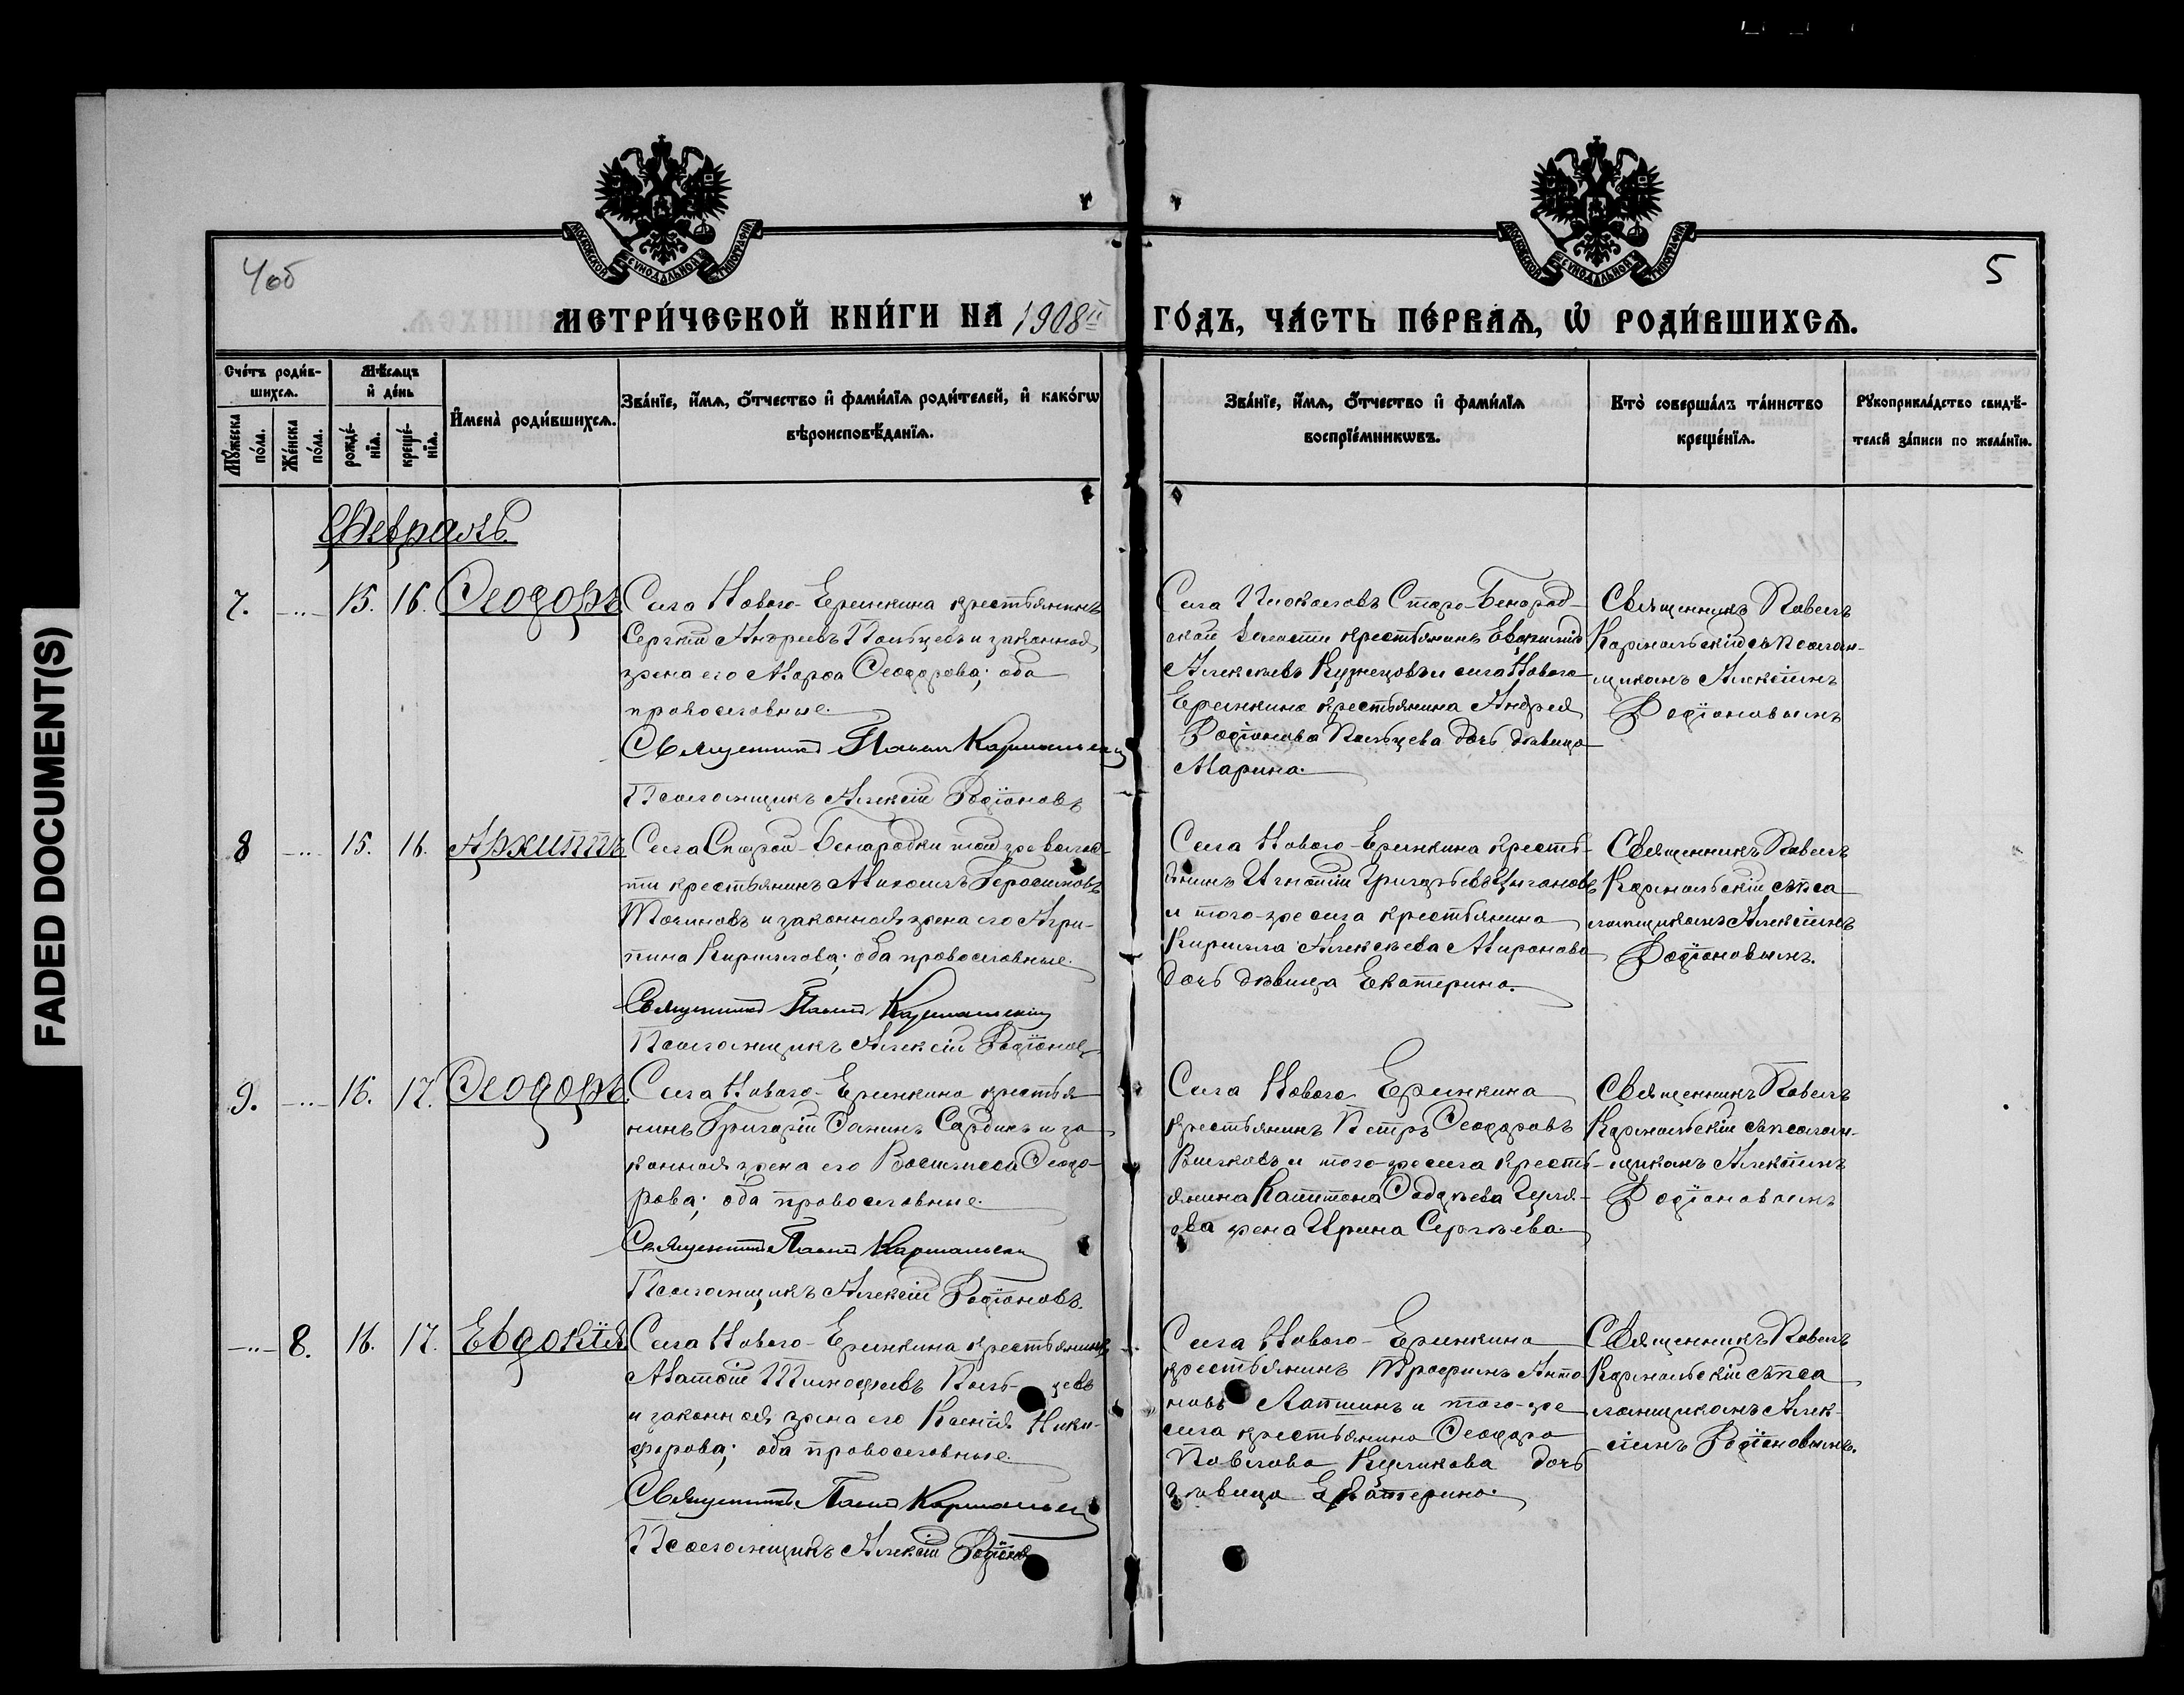 FADED DOCUMENT(S)
МОСКОВСКОЙ СѴНОДАЛЬНОЙ ТИПОГРАФІИ
МОСКОВСКОЙ СѴНОДАЛЬНОЙ ТИПОГРАФІИ
4об
5
МЕТРИ́ЧЕСКОЙ КНИ́ГИ НА 1908й ГО́ДЪ, ЧА́СТЬ ПЕ́РВАѦ, Ѡ҆ РОДИ́ВШИХСѦ.
Сче́тъ роди́в-
шихсѧ.
Мꙋ́жеска
по́ла.
Же́нска
по́ла.
Мѣ́сѧцъ
и҆ де́нь
рожде́-
нїѧ.
креще́-
нїѧ.
И҆мена̀ роди́вшихсѧ.
Зва́нїе, и҆́мѧ, ѻ҆́тчество и҆ фами́лїѧ роди́телей, и҆ како́гѡ
вѣроисповѣ́данїѧ.
Зва́нїе, и҆́мѧ, ѻ҆́тчество и҆ фами́лїѧ
воспрїе́мникѡвъ.
Кто̀ соверша́лъ та́инство
креще́нїѧ.
Рꙋкоприкла́дство свидѣ́-
телей за́писи по жела́нїю.
Февраль.
7. -..- 15. 16. Ѳеодоръ
Села Новаго-Еремкина крестьянинъ
Сергій Андреевъ Пальцевъ и законная
жена его Марѳа Ѳеодорова; оба
православные.
Священникъ Павелъ Кармальскій
Псаломщикъ Алексій Родіоновъ
Села Старо-
ской волости крестьянинъ
Алексѣевъ Кузнецовъ и села Новаго
Еремкина крестьянина Андрея
Родіонова Пальцева дочь дѣвица
Марина.
Священникъ Павелъ
Кармальскій съ псалом-
щикомъ Алексіемъ
Родіоновымъ
8 -..- 15. 16. Архиппъ
Села Старой- той же волос-
ти крестьянинъ Герасимовъ
и законная жена его Агри-
пина Кириллова; оба православные.
Священникъ Павелъ Кармальскій
Псаломщикъ Алексій Родіоновъ
Села Новаго-Еремкина кресть-
янинъ Игнатій Григорьевъ Цыгановъ
и того-же села крестьянина
Кирилла Алексѣева Миронова
дочь дѣвица Екатерина.
Священникъ Павелъ
Кармальскій съ пса
ломщикомъ Алексіемъ
Родіоновымъ.
9. -..- 16. 17. Ѳеодоръ.
Села Новаго-Еремкина крестья
нинъ Григорій и за
конная жена его Василисса Ѳеодо-
рова; оба православные.
Священникъ Павелъ Кармальскій
Псаломщикъ Алексій Родіоновъ.
Села Новаго Еремкина
крестьянинъ Петръ Ѳеодоровъ
и того-же села кресть-
янина Капитона
жена Ирина Сергѣева.
Священникъ Павелъ
Кармальскій съ псалом-
щикомъ Алексіемъ
Родіоновымъ
-..- 8. 16. 17. Евдокія.
Села Новаго-Еремкина крестьянинъ
Матѳій Тимоѳеевъ Паль-цевъ
и законная жена его Ксенія Ники-
форова; оба православные.
Священникъ Павелъ Кармальскій
Псаломщикъ Алексій Родіонов
Села Новаго-Еремкина
крестьянинъ Трофимъ Анто
новъ Лапшинъ и того-же
села крестьянина Ѳеодора
Павлова Куликова дочь
дѣвица Екатерина.
Священникъ Павелъ
Кармальскій съ пса
ломщикомъ Алек-
сіемъ Родіоновымъ.